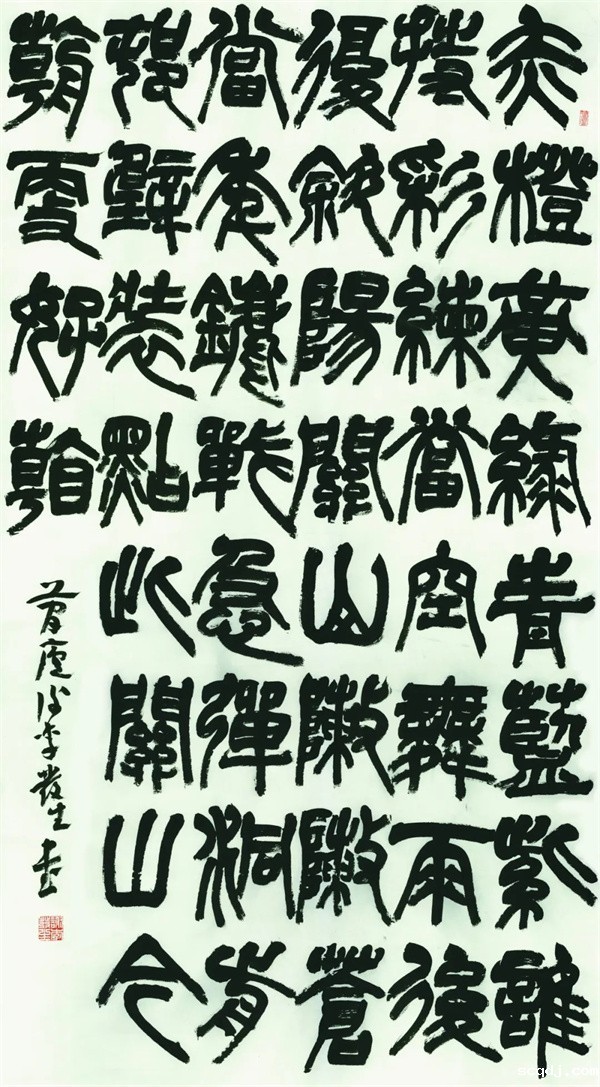 赤橙黃綠青藍紫誰
持彩練當空舞雨後
復斜陽關山陣陣蒼
當年鏖戰急彈洞前
邨壁裝點此關山今
朝更好看
李發生書